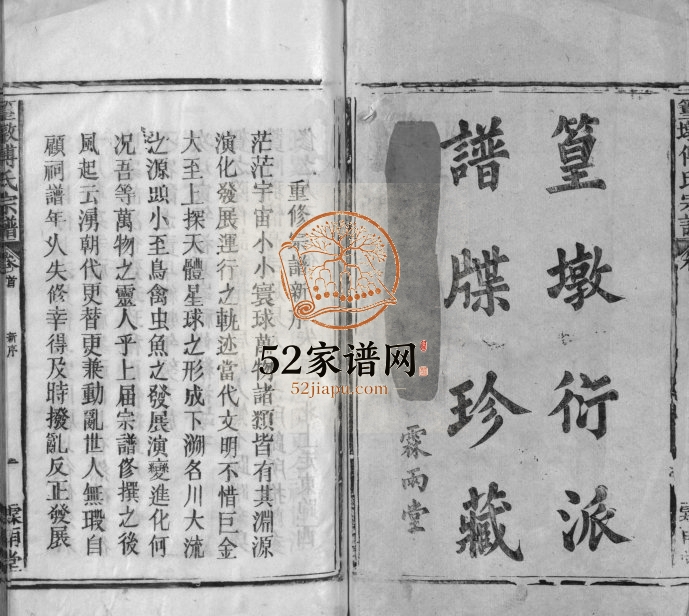 篁墩衍派
譜牒珍藏
霖雨堂
重修宗譜新序
茫茫宇宙小小寰球萬物諸類皆有其淵源
演化發展運行之軌迹當代文明不惜巨金
大至上探天體星球之形成下溯名川大流
之源頭小至鳥禽虫魚之發展演變進化何
况吾等萬物之靈人乎上届宗譜修撰之後
風起云湧朝代更替更兼動亂世人無瑕自
顧祠譜年久失修幸得及時撥亂反正發展
篁墩傅氏宗譜 卷首 新序 一 霖雨堂
52家谱网
52jiapu.com